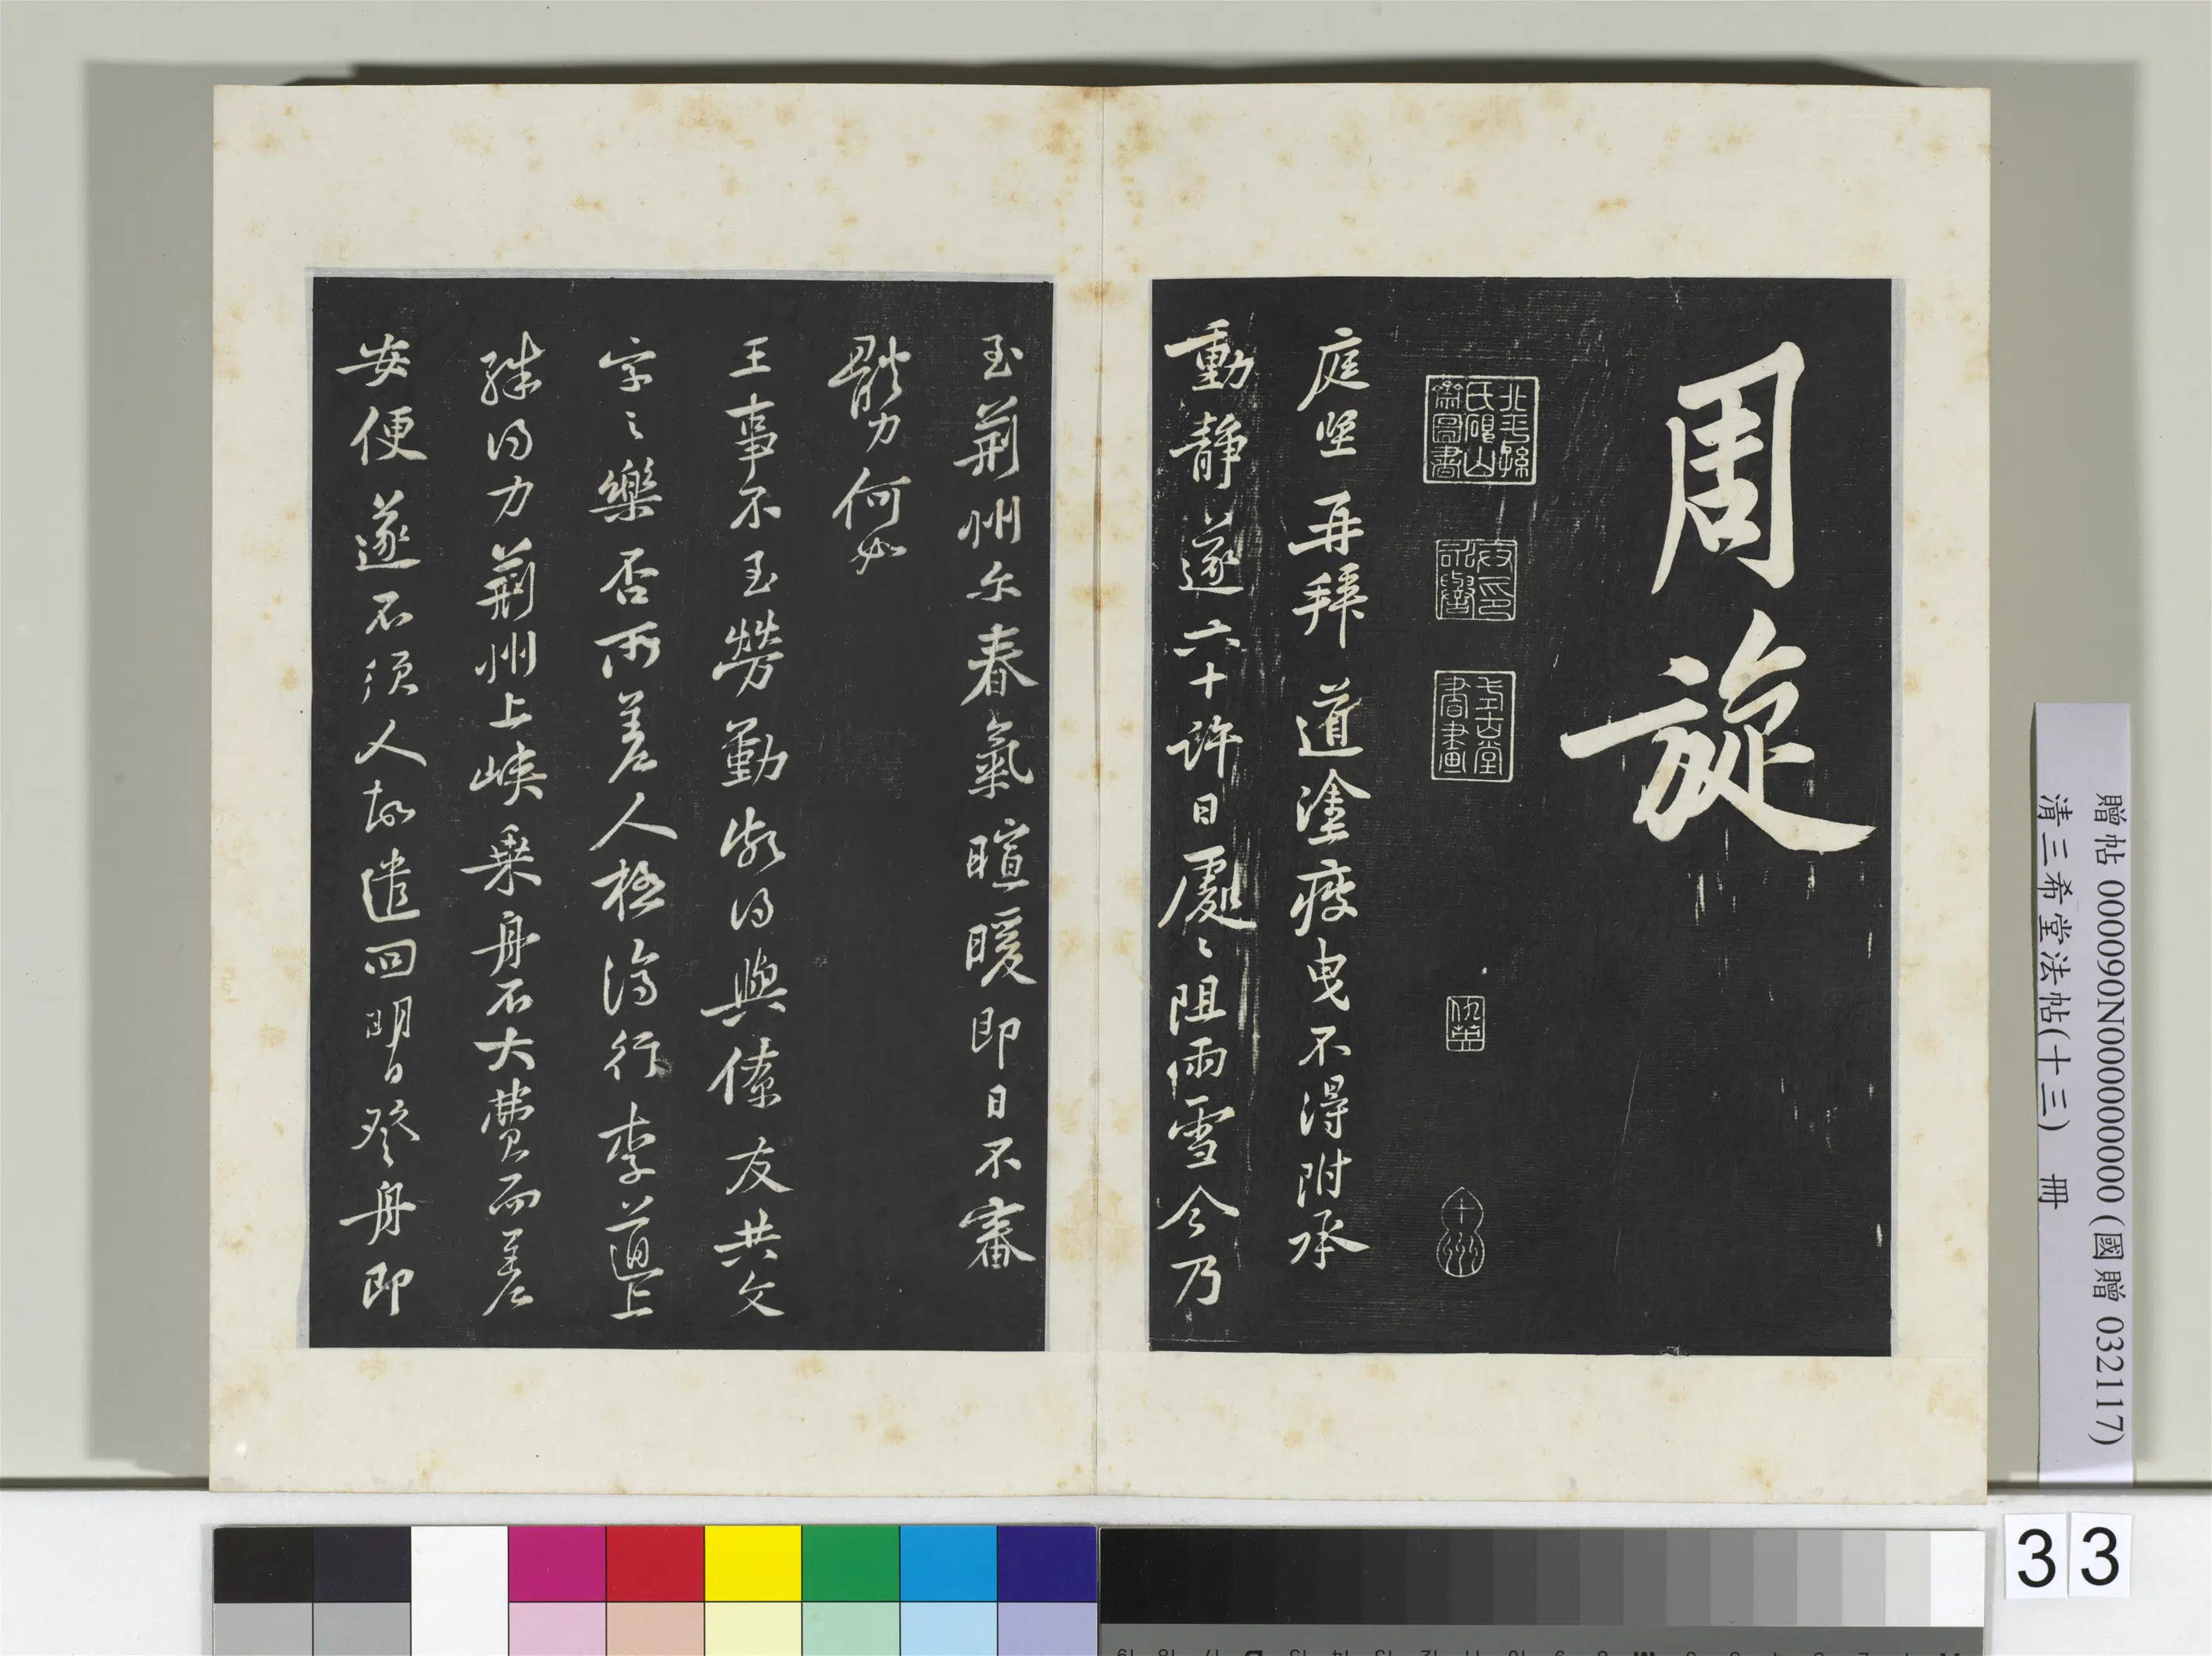 周旋
北平孫氏硯山齋圖書
安氏儀周書畫之章
庭堅再拜道塗疲曳不得附承
動靜遂六十許日處〻阻雨雪今乃
至荆州尒春氣暄暖即日不審
體力何如
王事不至勞勤頗得與僚友共文
字之樂否所差人極濟行李道上
殊得力荆州上峽乗舟不大費而差
安便遂不須人故遣回明日登舟即
贈帖 000090N000000000 (國贈 032117)
清三希堂法帖(十三) 冊
33